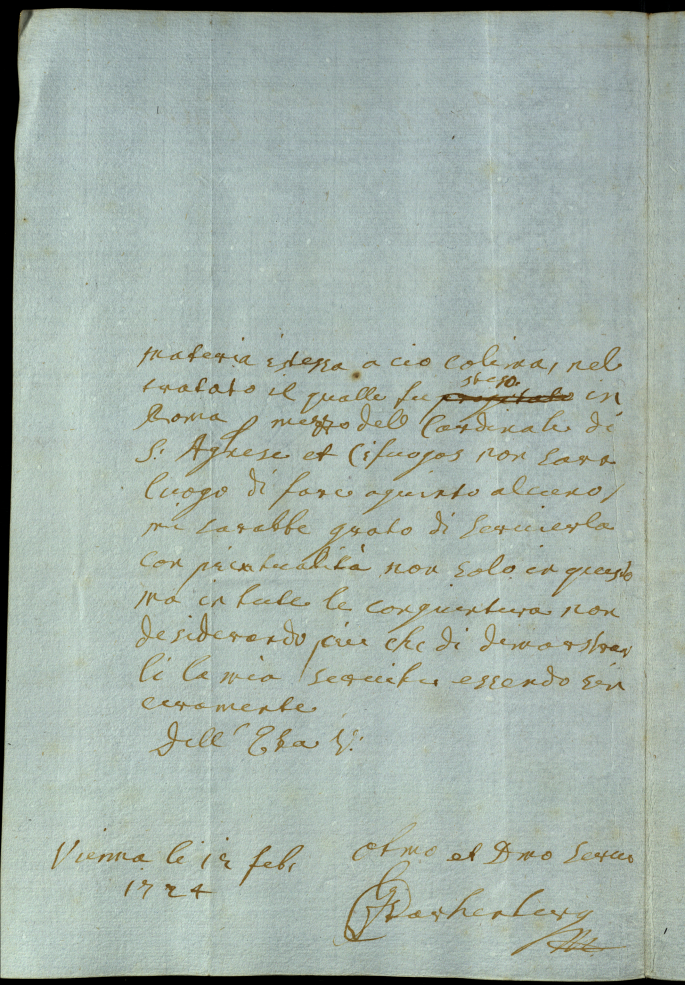 materia istessa a cio colima, nel
tratato il qualle fu steso in
Roma p mezzo dell Cardinale di
S: Agnese et Cifuegos non sara
luogo di farci agiunto alcuno,
mi sarabbe grato di servierla
con puntualità non solo in questo
ma in tute le conguntura non
desiderando piu che di dimonstrar
li la mia servitu essendo sin
ceramente
Dell' Eza V:
Vienna le 12 feb:
1724
Obmo et Dmo Servo
Starhemberg